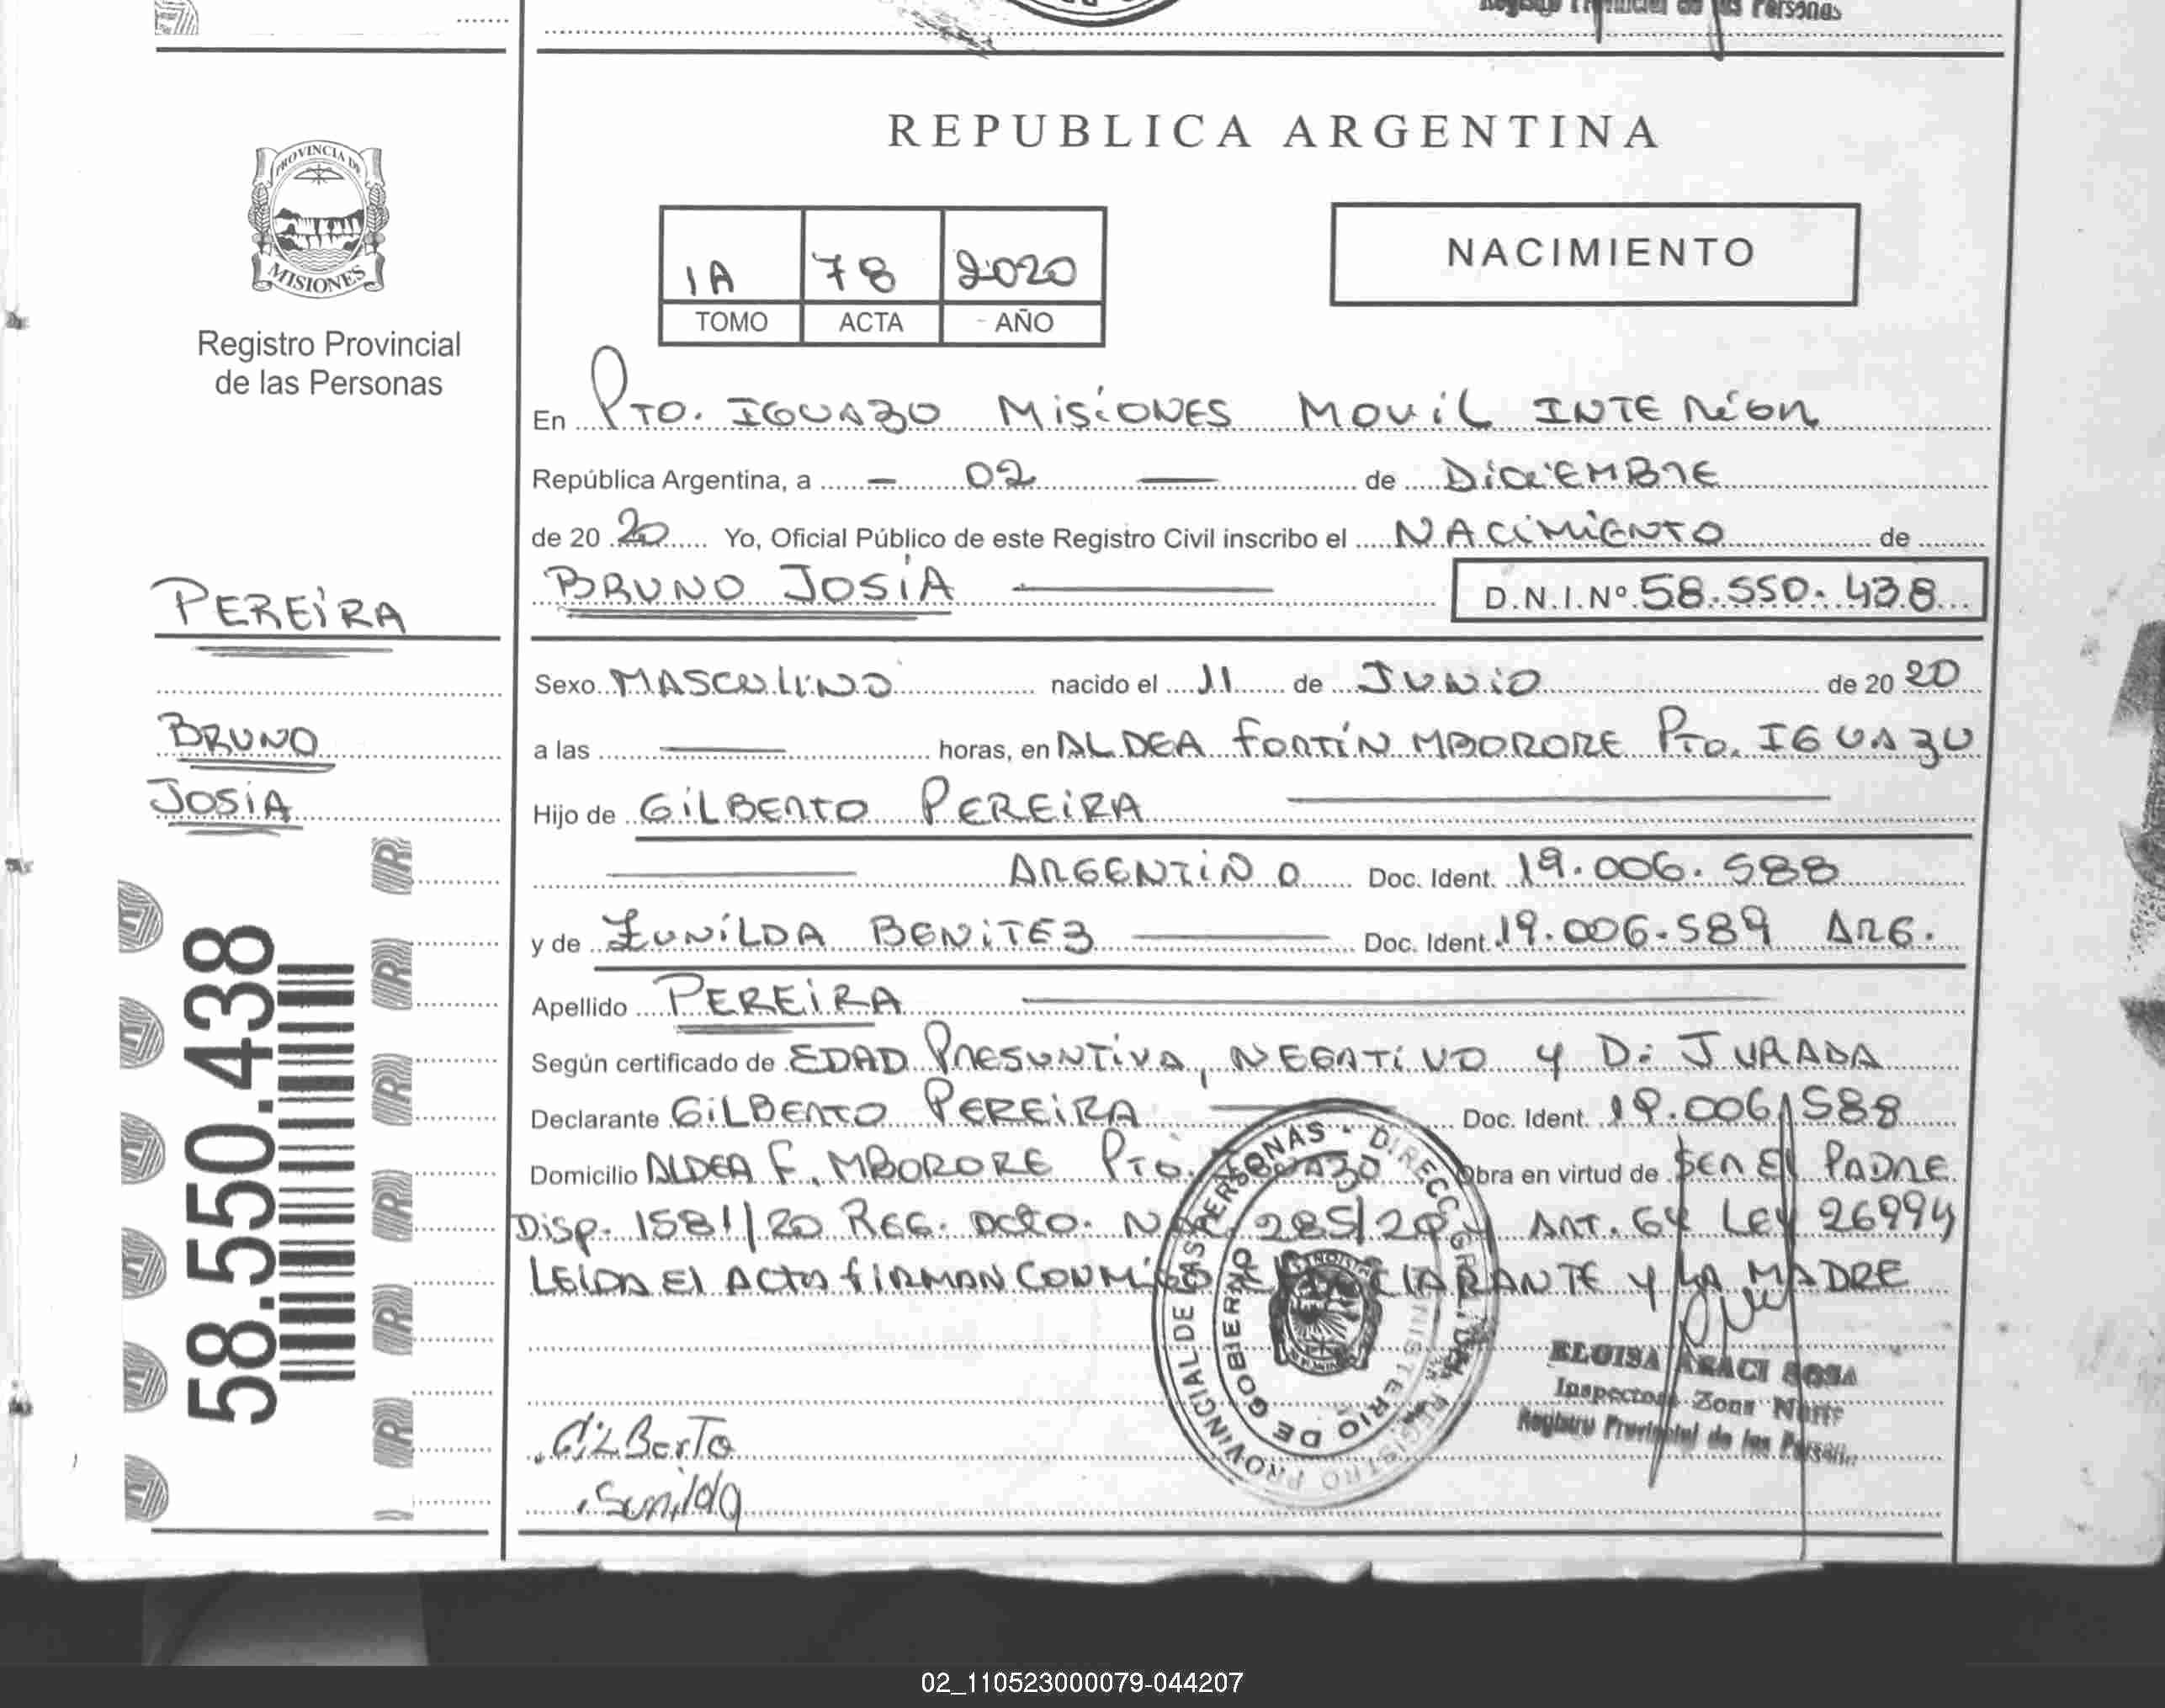 Registro Provincial de las Personas
REPUBLICA ARGENTINA
PROVINCIA DE
MISIONES
Registro Provincial
de las Personas
IA 78 2020
TOMO ACTA AÑO
NACIMIENTO
En PTO. IGUAZO MISIONES MOVIL INTERION
República Argentina, a - 02 — de DICIEMBRE
de 2020 Yo, Oficial Público de este Registro Civil inscribo el NACIMIENTO de
BRUNO JOSIA — D.N.I.Nº 58.550.438
PEREIRA
BRUNO
JOSIA
58.550.438
Sexo MASCULINO nacido el 11 de JUNIO de 2020
a las — horas, en ALDEA FORTÍN MBORORE PTO. IGUAZU
Hijo de GILBERTO PEREIRA —
— ARGENTINO Doc. Ident. 19.006.588
y de ZUNILDA BENITEZ — Doc. Ident. 19.006.589 ARG.
Apellido PEREIRA —
Según certificado de EDAD PRESUNTIVA, NEGATIVO Y D. JURADA
Declarante GILBERTO PEREIRA — Doc. Ident. 19.006.588
Domicilio ALDEA F. MBORORE PTO. Obra en virtud de SER EL PADRE
DISP. 1581/20 REG. DCTO. NAC. 285/20 ART. 64 LEY 26994
LEIDA EL ACTA FIRMAN CONMIGO DECLARANTE Y LA MADRE
DIRECC. GRAL. DEL REGISTRO PROVINCIAL DE LAS PERSONAS
MINISTERIO DE GOBIERNO
ELOISA ARACI SOSA
Inspectora Zona Norte
Registro Provincial de las Personas
GILBerTo
Sunilda
02_110523000079-044207